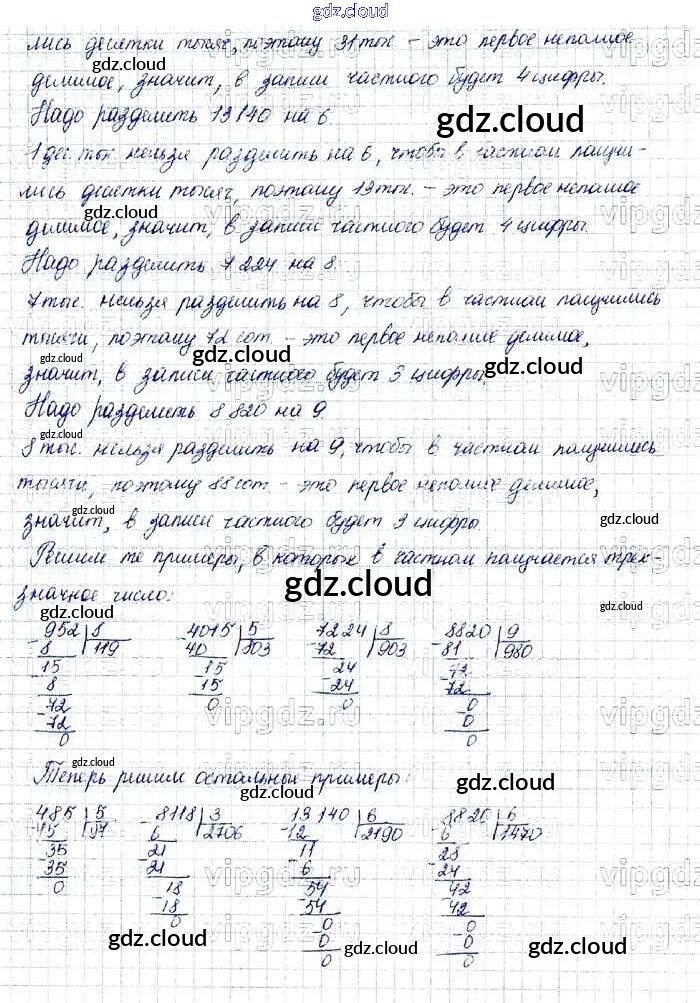 gdz.cloud
лись десятки тысяч, поэтому 31 тыс. - это первое неполное
делимое, значит, в записи частного будет 4 цифры.
Надо разделить 13140 на 6.
1 дес. тыс. нельзя разделить на 6, чтобы в частном получи-
лись десятки тысяч, поэтому 13 тыс. - это первое неполное
делимое, значит, в записи частного будет 4 цифры.
Надо разделить 7 224 на 8.
7 тыс. нельзя разделить на 8, чтобы в частном получились
тысячи, поэтому 72 сот. - это первое неполное делимое,
значит, в записи частного будет 3 цифры.
Надо разделить 8 820 на 9.
8 тыс. нельзя разделить на 9, чтобы в частном получились
тысячи, поэтому 88 сот. - это первое неполное делимое,
значит, в записи частного будет 3 цифры.
Решим те примеры, в которых в частном получается трех-
значное число:
952 8 4015 5 7224 8 8820 9
8 119 40 803 72 903 81 980
15 15 24 72
8 15 24 72
72 0 0 0
72 0
0 0
Теперь решим остальные примеры:
485 5 8118 3 13140 6 8820 6
45 97 6 2706 12 2190 6 1470
35 21 11 28
35 21 6 24
0 18 54 42
18 54 42
0 0 0
0 0
0 0